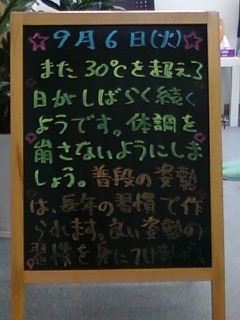 9月6日(火)
また30℃を超える
日がしばらく続く
ようです。体調を
崩さないようにしま
しょう。普段の姿勢
は、長年の習慣で作
られます。良い姿勢の
習慣を身につけましょう